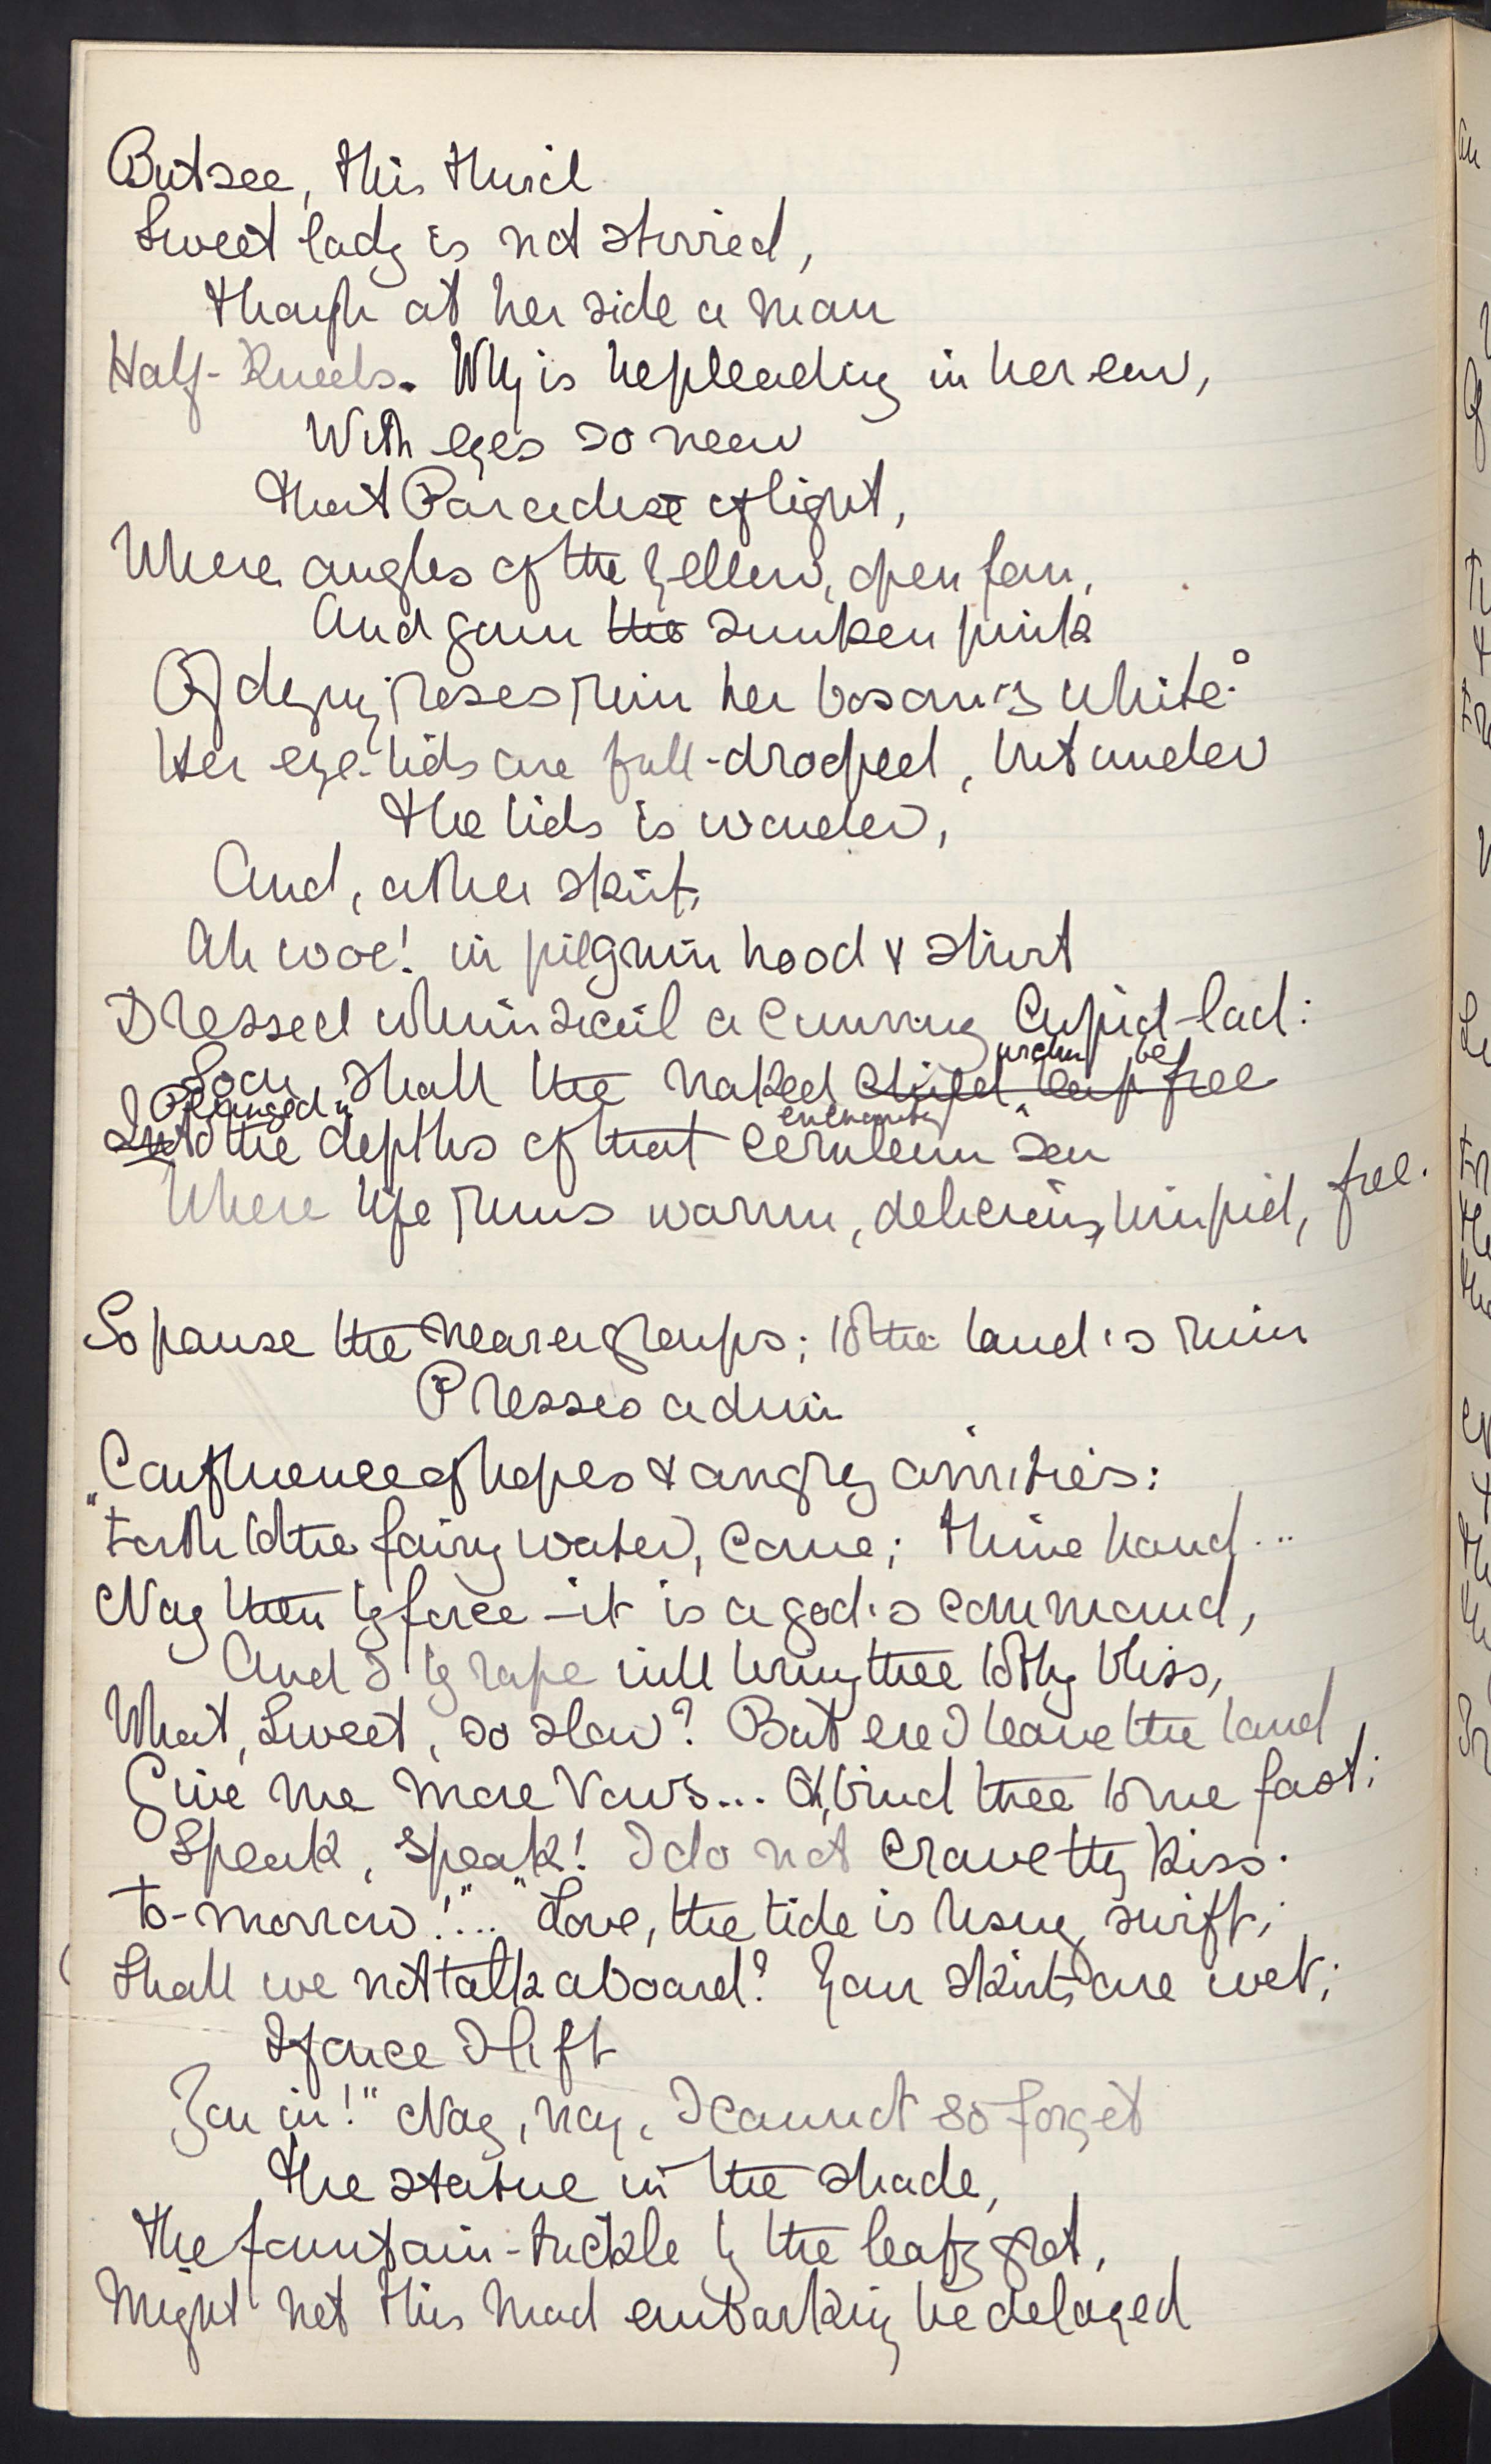 But see, this third
Sweet lady is not stirred,
Though at her side a man
Half-kneels. Why is he pleading in her ear,
With eyes so near
That Paradise of light,
Where angles of the yellow, open fan,
And gown the sunken pink
Of dying roses rim her bosom's white?
Her eye-lids are full-drooped, but under
The lids is wonder,
And, at her skirt,
Ah woe! in pilgrim hood & shirt
Dressed whimsical a cunning Cupid-lad:
Soon shall the naked child leap free
urchin be
Plunged in
Into the depths of that cerulean sea
enchanted
Where life runs warm, delicious, limpid, free.
So pause the nearer groups; to the land's rim
Presses a dim
Confluence of hopes & angry amities:
"Forth to the fairy water, come; thine hand...
Nay then by force - it is a god's command,
And I by rape will bring thee to thy bliss,
What, Sweet, so slow? But ere I leave the land
Give me more vows... Oh, bind thee to me fast;
Speak, speak! I do not crave thy kiss.
To-morrow!"... "Love, the tide is rising swift;
Shall we not talk aboard? Your skirts are wet;
If once I lift
You in!" "Nay, nay, I cannot so forget
The statue in the shade,
The fountain-trickle by the leafy grot,
Might not this mad embarking be delayed